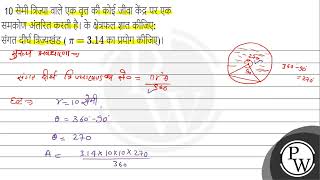 10 सेमी त्रिज्या वाले एक वृत्त की कोई जीवा केंद्र पर एक
समकोण अंतरित करती है। के क्षेत्रफल ज्ञात कीजिए:
संगत दीर्घ त्रिज्यखंड ( π = 3.14 का प्रयोग कीजिए)।
संगत दीर्घ त्रिज्यखण्ड का क्षे० = πr²θ
360
r = 10 सेमी,
θ = 360° - 90°
θ = 270
A = 3.14 × 10 × 10 × 270
360
360 - 90°
= 270
P
W